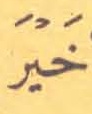 خَيْرَ